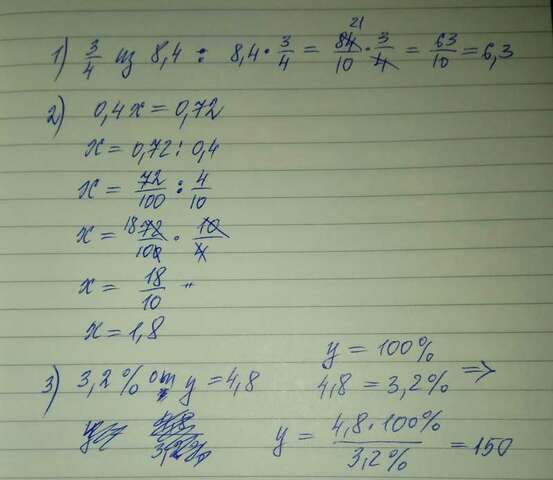 1) 3/4 из 8,4 : 8,4 · 3/4 = 84/10 · 3/4 = 63/10 = 6,3
21
2) 0,4x = 0,72
x = 0,72 : 0,4
x = 72/100 : 4/10
x = 18 72/100 · 10/4
x = 18/10
x = 1,8
3) 3,2% от y = 4,8
y = 100%
4,8 = 3,2% ⇒
y = 4,8 · 100% / 3,2% = 150